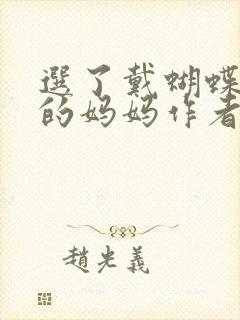 選了戴蝴蝶
的妈妈作者
趙光義